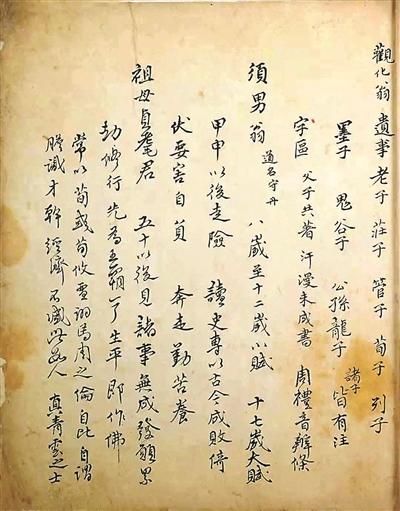 觀化翁遺事 老子 莊子 管子 荀子 列子
墨子 鬼谷子 公孫龍子 諸子 皆有注
字區 父子共著 汗漫未成書 周禮音辨條
須男翁 道名守丹 八歲至十二歲小賦 十七歲大賦
甲申以後走險 讀史專以古今成敗倚
伏要害自負 奔走勤苦養
祖母貞髦君 五十以後見諸事無成發願累
劫修行先為五霸一了生平即作佛
常以荀彧荀攸賈詡馬周之倫自比自謂
膽識才幹經濟不減此數人 真青雲之士